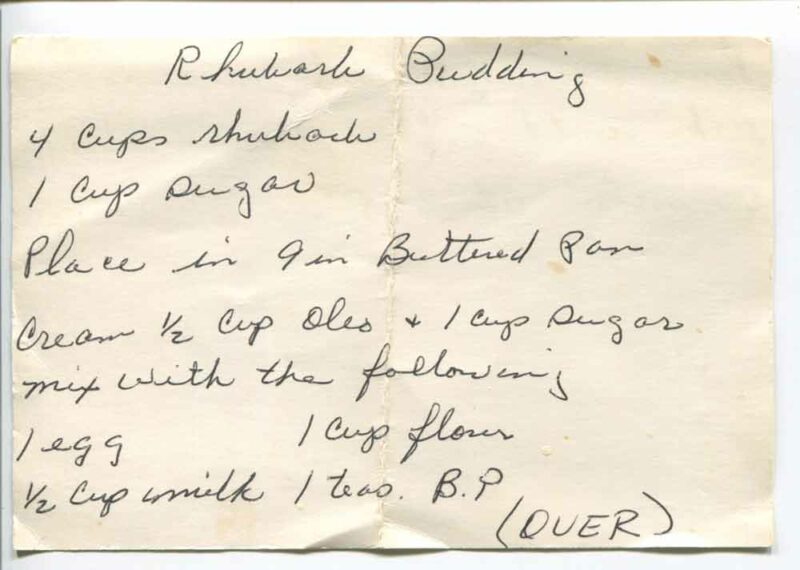 Rhubarb Pudding
4 cups rhubarb
1 cup sugar
Place in 9 in Buttered Pan
Cream ½ cup Oleo + 1 cup sugar
mix with the following
1 egg 1 cup flour
½ cup milk 1 teas. B.P
(OVER)